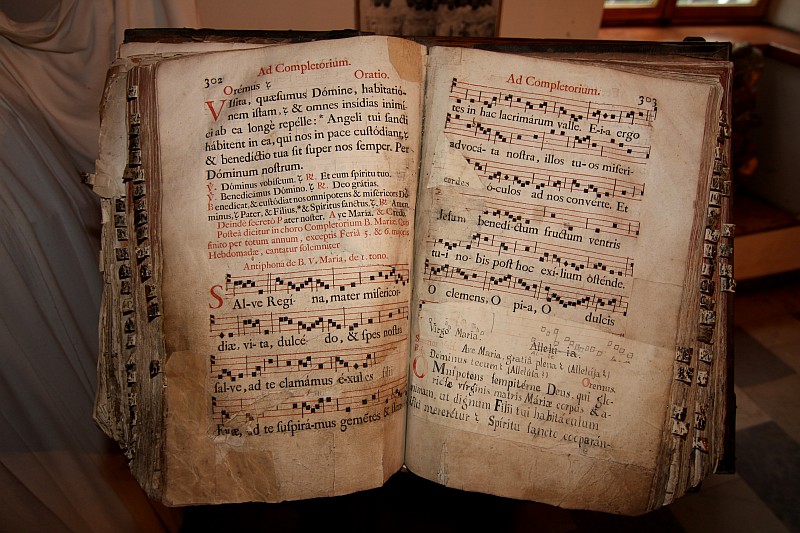 302
Ad Completorium.
Orémus ⁊ Oratio.
VIsita, quæsumus Dómine, habitatió-
nem istam, ⁊ & omnes insidias inimi-
ci ab ea longè repélle: * Angeli tui sancti
hábitent in ea, qui nos in pace custódiant, ⁊
& benedictio tua sit super nos semper. Per
Dóminum nostrum.
℣. Dóminus vobiscum. ⁊ ℟. Et cum spiritu tuo.
℣. Benedicamus Dómino. ⁊ ℟. Deo grátias.
Benedicat, & custódiat nos omnipotens & misericors Dó-
minus, ⁊ Pater, & Filius, * & Spiritus sanctus. ⁊ ℟. Amen.
Deinde secretò Pater noster, Ave María, & Credo.
Posteà dicitur in choro Completorium B. Mariæ, Quo
finito per totum annum, exceptis Feriâ 5. & 6. majoris
Hebdomadæ, cantatur solemniter
Antiphona de B. V. Maria, de 1. tono.
SAl-ve Regi- na, mater misericor-
diæ, vi-ta, dulcé- do, & spes nostra
sal-ve, ad te clamámus éxules
Evæ, ad te suspirá-mus geméntes &
Ad Completorium.
303
tes in hac lacrimárum valle. E-i-a ergo
advocá-ta nostra, illos tu-os miseri-
cordes ó-culos ad nos converte. Et
Jesum benedi-ctum fructum ventris
tu-i no-bis post hoc exi-lium ósténde.
O clemens, O pi-a, O dulcis
Virgo María. Allelu-ia.
Ave María, gratiâ plena ⁊ (Allelúja ⁊)
Dóminus tecum ⁊ (Allelúja ⁊)
Oremus.
OMnipotens sempitérne Deus, qui glo-
riósæ virginis matris Máriæ corpus & a-
nimam, ut dignum Fílii tui habitáculum
éffici mererétur ⁊ Spíritu sancto cooperán-